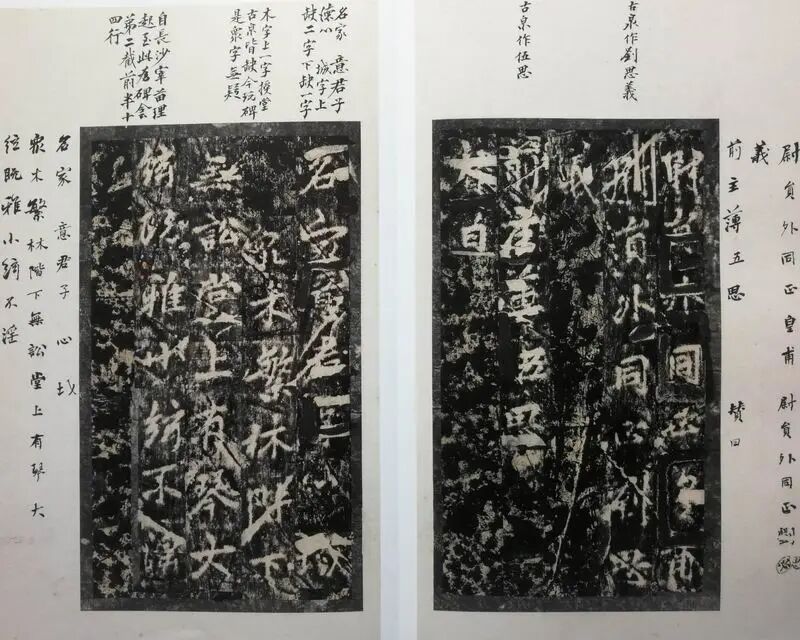 古泉作劉思義
古泉作伍思
尉員外同正皇甫 尉員外同正
義
前主薄五思 贊曰
員外同正
尉員外同正劉思
義
前主薄五思
曰
名家 意君子
心 城字上
缺二字下缺一字
木字上一字
古泉皆缺今玩碑
是衆字無疑
自長沙宰苗理
起至此為碑
第二截前半十
四行
名家意君子心域
木繁林階下
無訟堂上有琴大
既雅小不淫
名家 意君子 心 域
衆木繁林階下無訟堂上有琴大
絃既雅小綺不淫